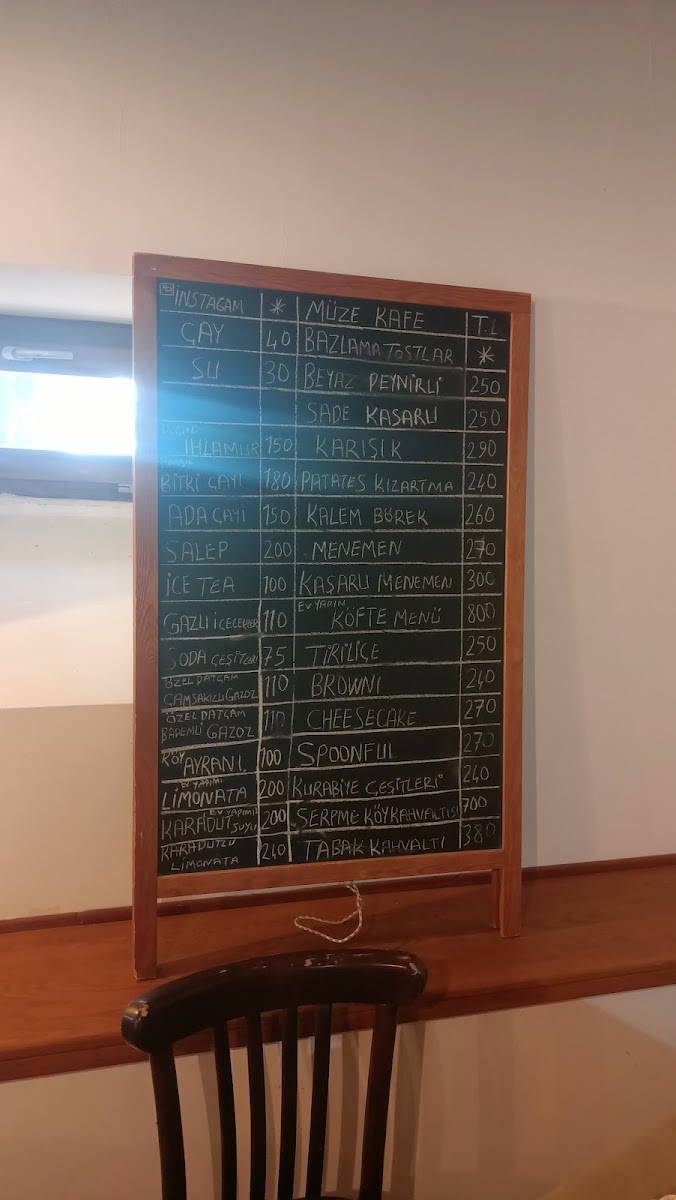 INSTAGAM * MÜZE KAFE T.L
ÇAY 40 BAZLAMA TOSTLAR *
SU 30 BEYAZ PEYNİRLİ 250
SADE KAŞARLI 250
IHLAMUR 150 KARIŞIK 290
BİTKİ ÇAYI 180 PATATES KIZARTMA 240
ADA ÇAYI 150 KALEM BÖREK 260
SALEP 200 MENEMEN 270
İCE TEA 100 KAŞARLI MENEMEN 300
GAZLI İÇECEKLER 110 EV YAPIM KÖFTE MENÜ 800
SODA ÇEŞİTLERİ 75 TİRİLİÇE 250
ÖZEL DATÇAM
ÇAMSAKIZLI GAZOZ 110 BROWNI 240
ÖZEL DATÇAM
BADEMLİ GAZOZ 110 CHEESECAKE 270
KÖY AYRANI 100 SPOONFUL 270
EV YAPIMI
LİMONATA 200 KURABİYE ÇEŞİTLERİ 240
EV YAPIMI
KARADUT SUYU 200 SERPME KÖY KAHVALTISI 700
KARADUTLU
LİMONATA 240 TABAK KAHVALTI 380